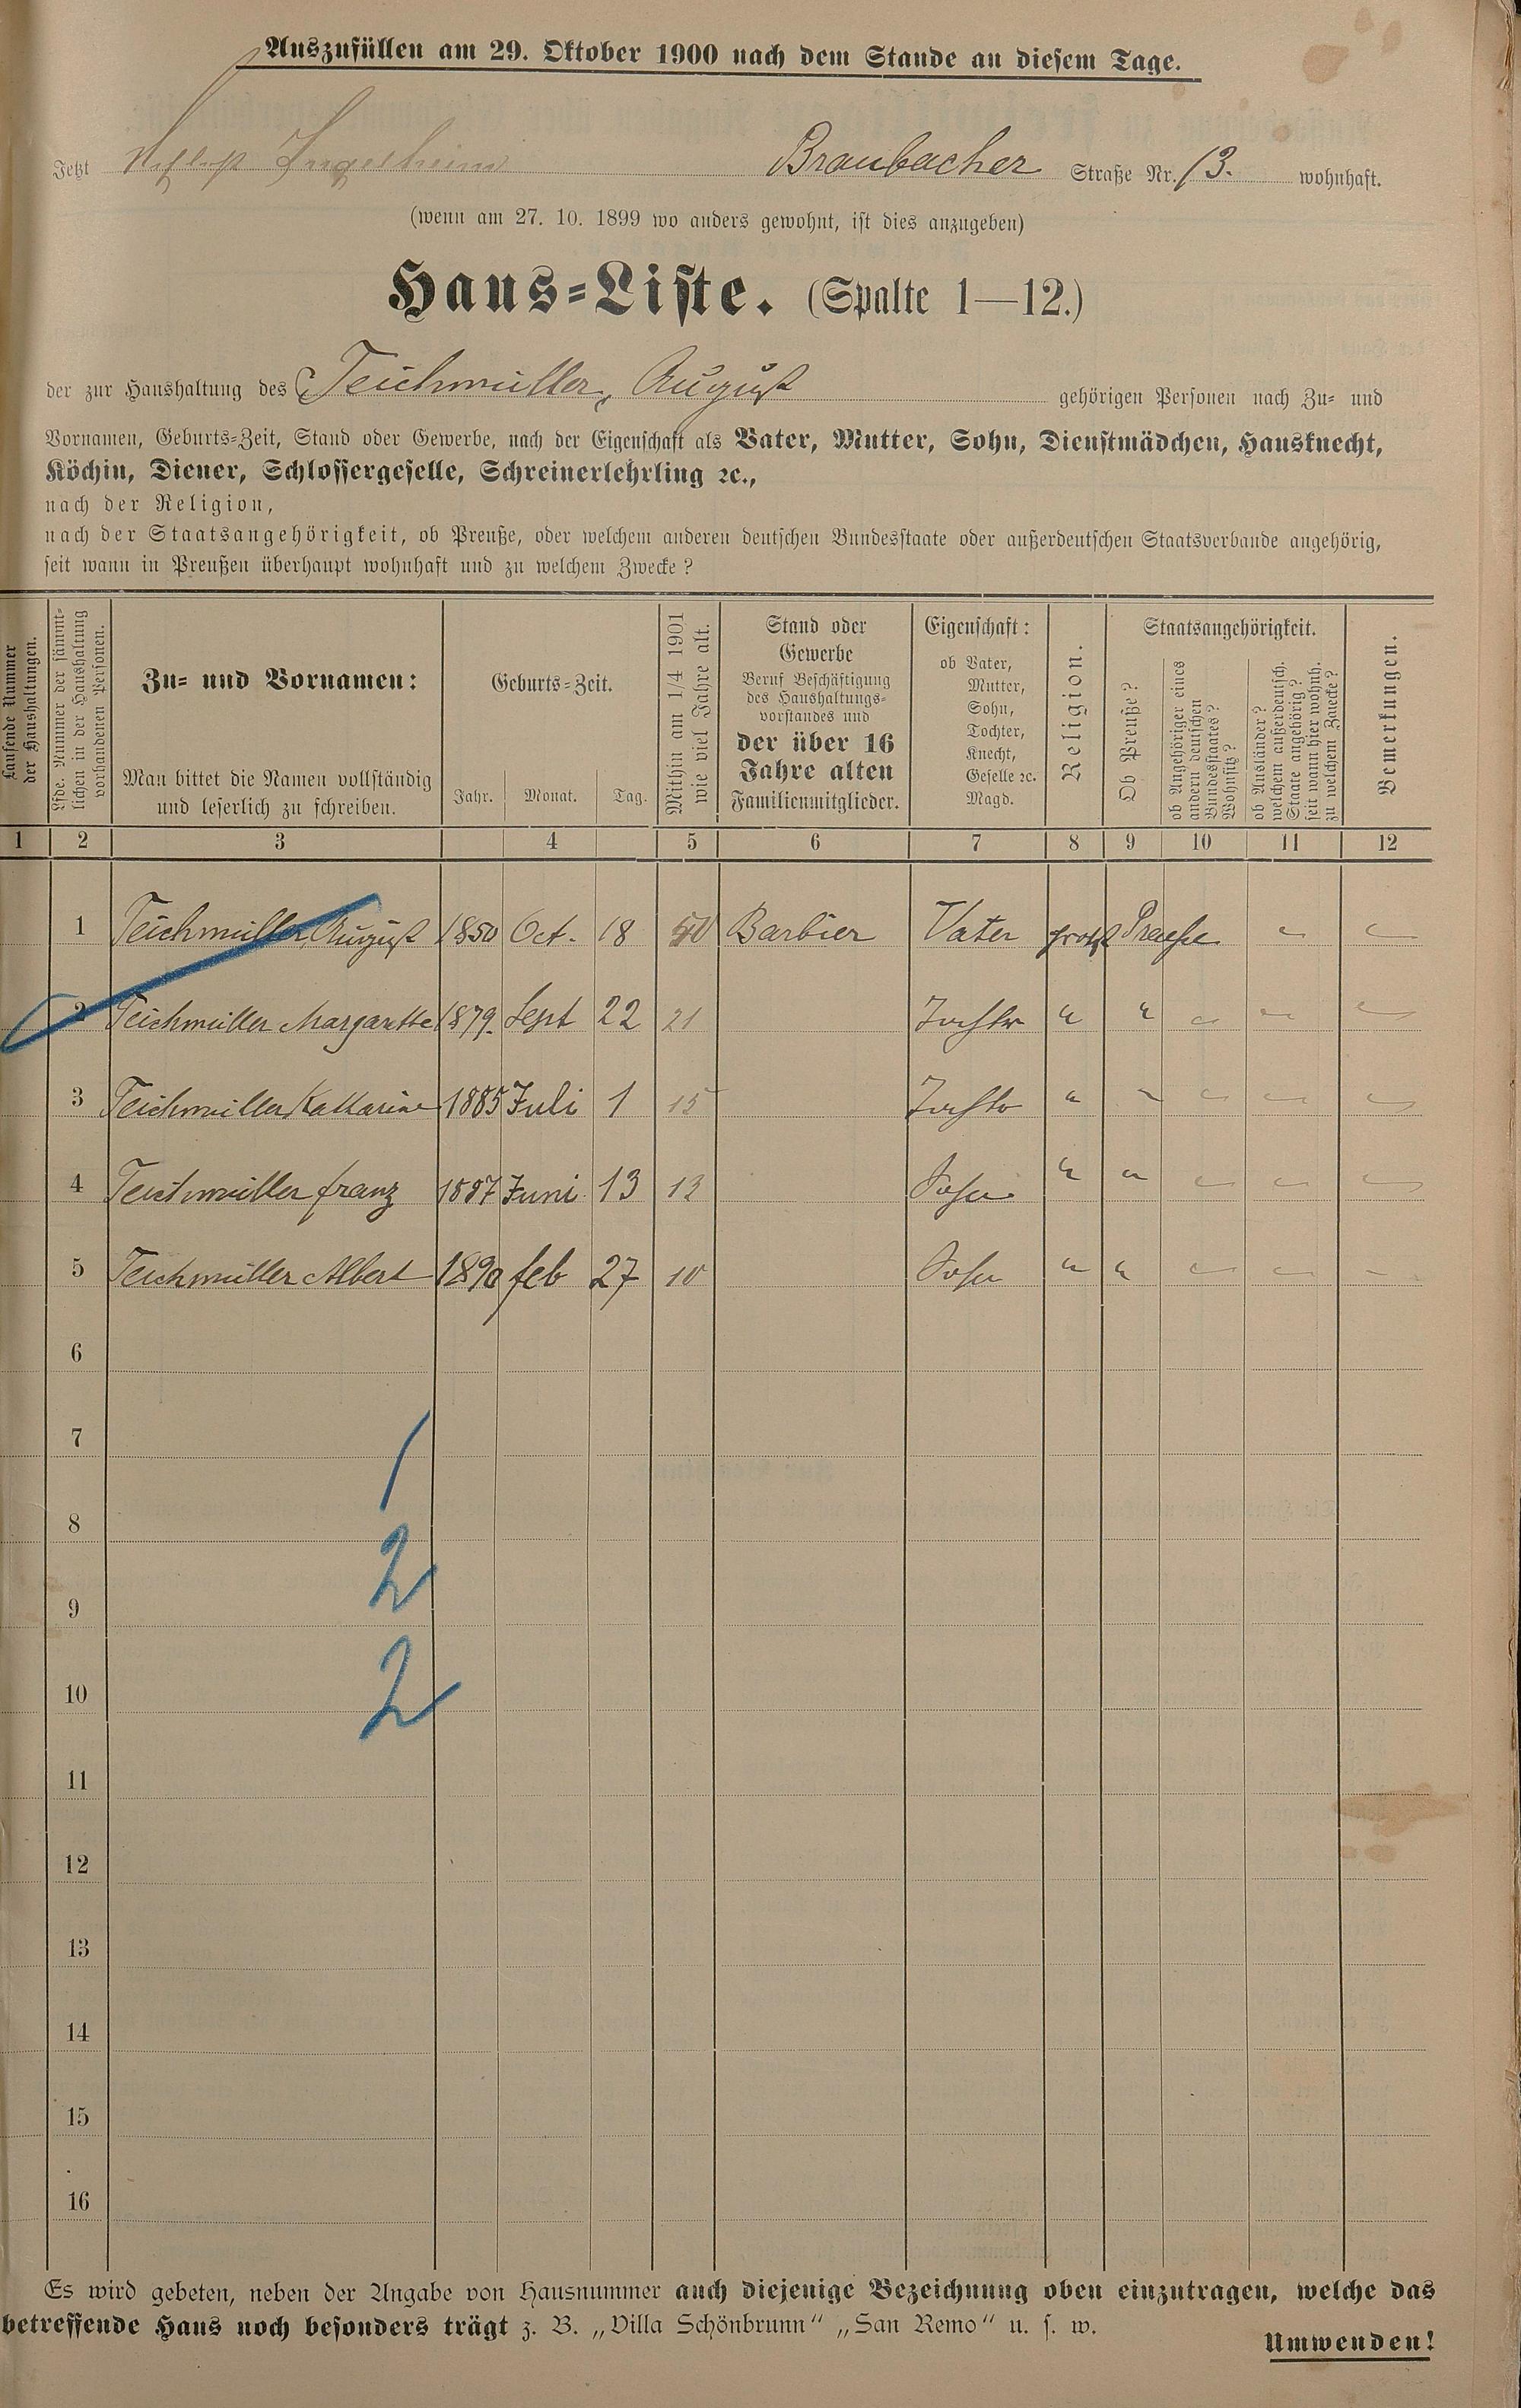 Auszufüllen am 29. Oktober 1900 nach dem Stande an diesem Tage.
Jetzt Ingelheim Braubacher Straße Nr. 13. wohnhaft.
(wenn am 27. 10. 1899 wo anders gewohnt, ist dies anzugeben)
Haus-Liste. (Spalte 1—12.)
der zur Haushaltung des Teichmüller, August gehörigen Personen nach Zu- und
Vornamen, Geburts-Zeit, Stand oder Gewerbe, nach der Eigenschaft als Vater, Mutter, Sohn, Dienstmädchen, Hausknecht,
Köchin, Diener, Schlossergeselle, Schreinerlehrling ꝛc.,
nach der Religion,
nach der Staatsangehörigkeit, ob Preuße, oder welchem anderen deutschen Bundesstaate oder außerdeutschen Staatsverbande angehörig,
seit wann in Preußen überhaupt wohnhaft und zu welchem Zwecke?
Laufende Nummer
der Haushaltungen.
Lfde. Nummer der sämmt-
lichen in der Haushaltung
vorhandenen Personen.
Zu- und Vornamen:
Man bittet die Namen vollständig
und leserlich zu schreiben.
Geburts-Zeit.
Jahr. Monat. Tag.
Mithin am 1/4 1901
wie viel Jahre alt.
Stand oder
Gewerbe
Beruf Beschäftigung
des Haushaltungs-
vorstandes und
der über 16
Jahre alten
Familienmitglieder.
Eigenschaft:
ob Vater,
Mutter,
Sohn,
Tochter,
Knecht,
Geselle ꝛc.
Magd.
Religion.
Staatsangehörigkeit.
Ob Preuße?
ob Angehöriger eines
andern deutschen
Bundesstaates?
Wohnsitz?
ob Ausländer?
welchem außerdeutsch.
Staate angehörig?
seit wann hier wohnh.
zu welchem Zwecke?
Bemerkungen.
1 2 3 4 5 6 7 8 9 10 11 12
1 Teichmüller August 1850 Oct. 18 50 Barbier Vater Preuße
2 Teichmüller Margarethe 1879. Sept 22 21 Tochter " "
3 Teichmüller Katharine 1885 Juli 1 15 Tochter " "
4 Teichmüller Franz 1887 Juni 13 13 Sohn " "
5 Teichmüller Albert 1890 Feb 27 10 Sohn " "
6
7
1
8
2
9
10
2
11
12
13
14
15
16
Es wird gebeten, neben der Angabe von Hausnummer auch diejenige Bezeichnung oben einzutragen, welche das
betreffende Haus noch besonders trägt z. B. „Villa Schönbrunn“ „San Remo“ u. s. w.
Umwenden!